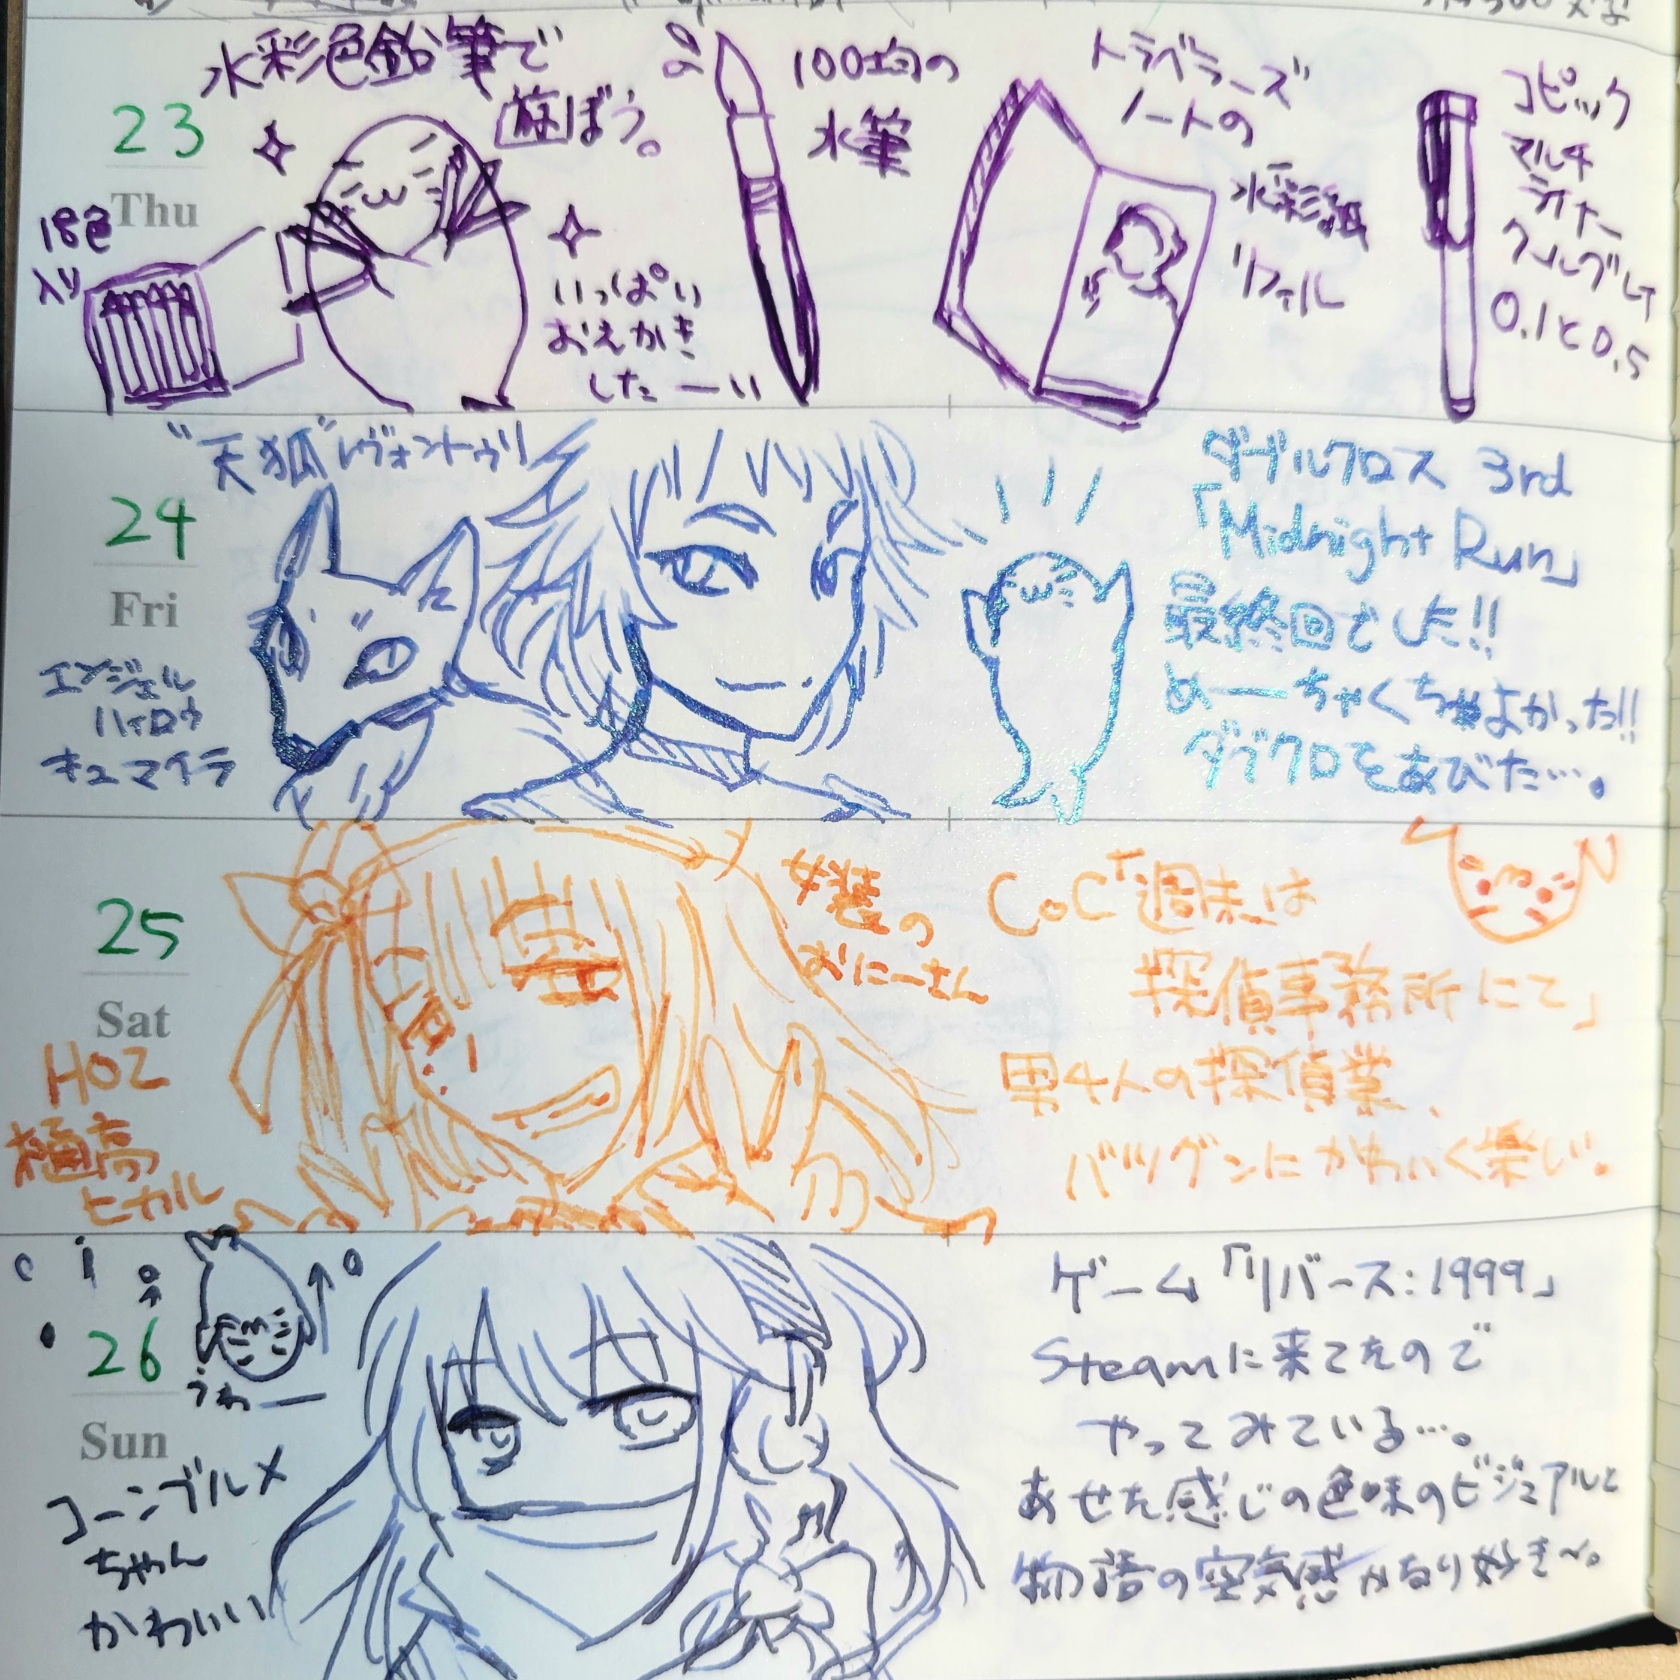 水彩色鉛筆で
遊ぼう。
23
Thu
18色
入り
いっぱい
おえかき
したーい
100均の
水筆
トラベラーズ
ノートの
水彩紙
リフィル
コピック
マルチ
ライナー
クールグレー
0.1と0.5
"天狐"レヴォントゥリ
24
Fri
エンジェル
ハィロゥ
キュマイラ
ダブルクロス 3rd
「Midnight Run」
最終回でした!!
めーーちゃくちゃよかった!!
ダブクロをあびた…。
25
Sat
HO2
樋高
ヒカル
女装の
おにーさん
CoC「週末は
探偵事務所にて」
男4人の探偵業、
バツグンにかわいく楽しい。
26
Sun
うわー
コーンブルメ
ちゃん
かわいい
ゲーム「リバース:1999」
Steamに来てたので
やってみている…。
あせた感じの色味のビジュアルと
物語の空気感かなり好き〜。